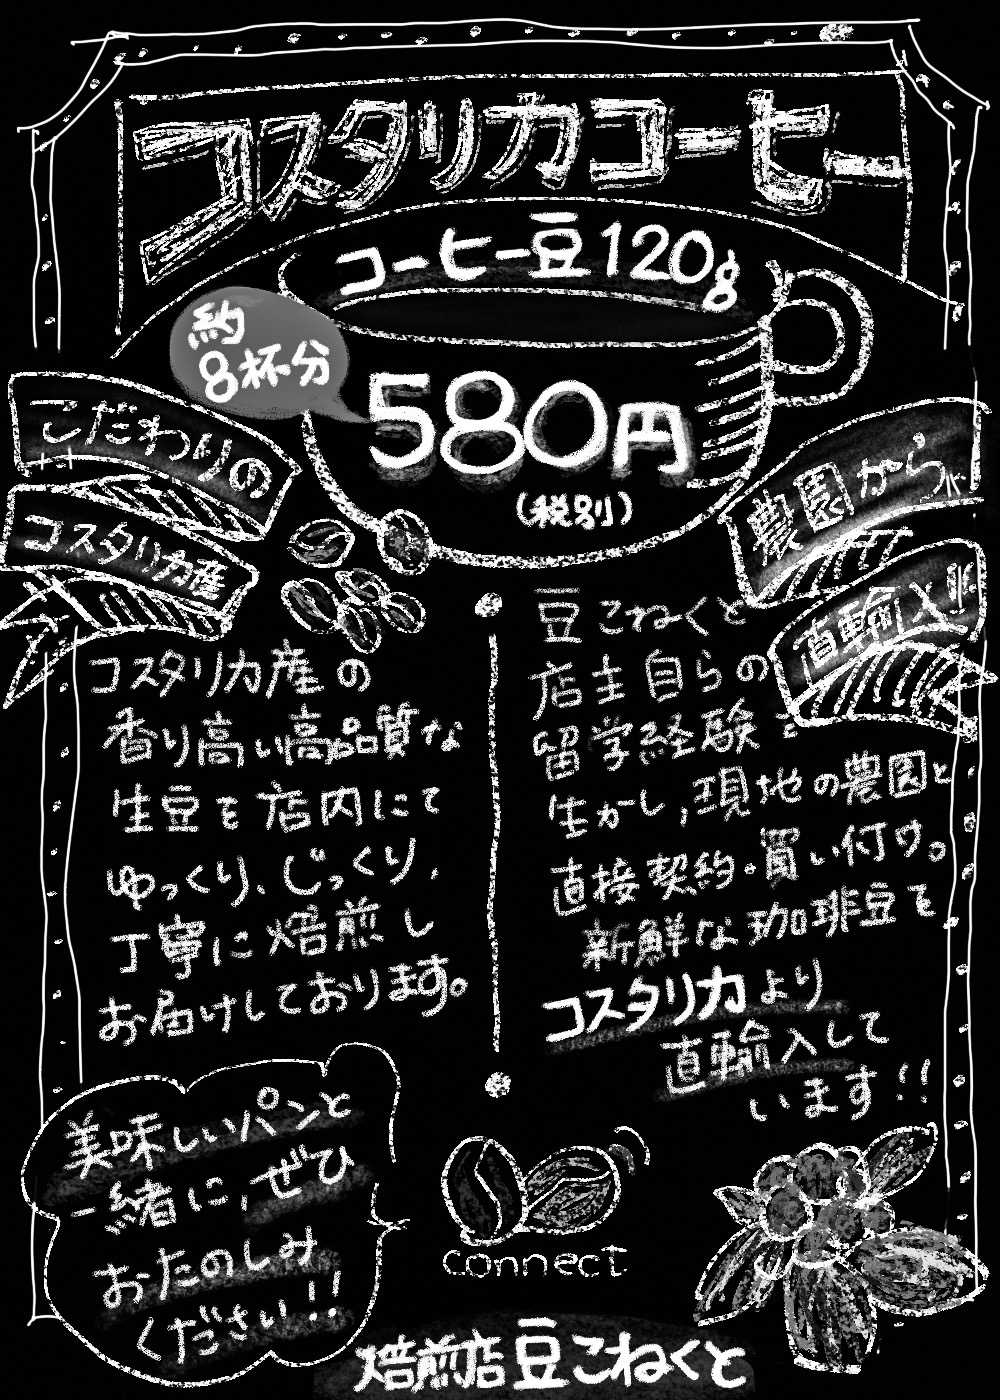 コスタリカコーヒー
コーヒー豆120g
約
8杯分
580円
(税別)
こだわりの
コスタリカ産
農園から
直輸入!!
コスタリカ産の
香り高い高品質な
生豆を店内にて
ゆっくり、じっくり、
丁寧に焙煎し
お届けしております。
豆こねくと
店主自らの
留学経験を
生かし,現地の農園と
直接契約・買い付け。
新鮮な珈琲豆を
コスタリカより
直輸入して
います!!
美味しいパンと
一緒に,ぜひ
おたのしみ
ください!!
connect
焙煎店豆こねくと